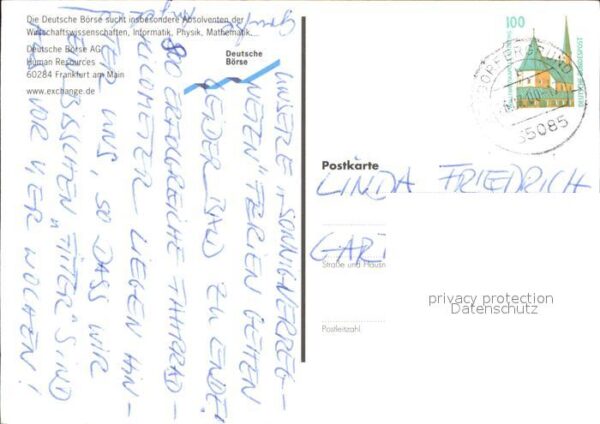 Die Deutsche Börse sucht insbesondere Absolventen der
Wirtschaftswissenschaften, Informatik, Physik, Mathematik...
Deutsche Börse AG
Human Resources
60284 Frankfurt am Main
www.exchange.de
Deutsche
Börse
UNSERE „SONNIGVERREG-
NETEN" FERIEN GEHEN
LEIDER BALD ZU ENDE!
800 ERFOLGREICHE FAHRRAD-
KILOMETER LIEGEN HIN-
TER UNS, SO DASS WIR
EIN BISSCHEN „FITTER" SIND
ALS VOR VIER WOCHEN!
100
DEUTSCHE BUNDESPOST
35085
Postkarte
LINDA FRIEDRICH
Straße und Hausn
Postleitzahl
privacy protection
Datenschutz